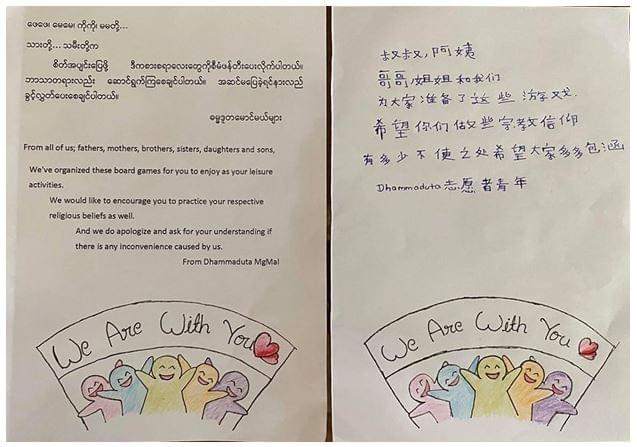 ဖေဖေ၊ မေမေ၊ ကိုကို၊ မမတို့...
သားတို့... သမီးတို့က
စိတ်အပျင်းပြေဖို့ ဒီကစားစရာလေးတွေကိုစီမံဖန်တီးပေးလိုက်ပါတယ်။
ဘာသာတရားလည်း ဆောင်ရွက်ကြစေချင်ပါတယ်။ အဆင်မပြေခဲ့ရင်နားလည်
ခွင့်လွှတ်ပေးစေချင်ပါတယ်။
ဓမ္မဒူတမောင်မယ်များ
From all of us; fathers, mothers, brothers, sisters, daughters and sons,
We've organized these board games for you to enjoy as your leisure
activities.
We would like to encourage you to practice your respective
religious beliefs as well.
And we do apologize and ask for your understanding if
there is any inconvenience caused by us.
From Dhammaduta MgMal
We Are With You
叔叔,阿姨
哥哥,姐姐和我们
为大家准备了这些游戏.
希望你们做些宗教信仰
有多少不便之处希望大家多多包涵
Dhammaduta志愿者青年
We Are With You